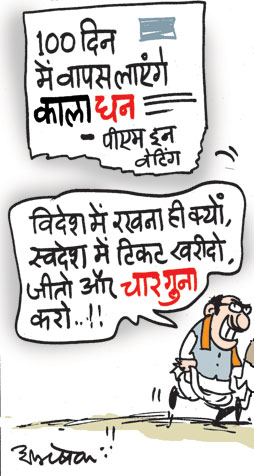 100 दिन
में वापस लाएंगे
काला धन
- पीएम इन
वेटिंग
विदेश में रखना ही क्यों,
स्वदेश में टिकट खरीदो,
जीतो और चार गुना
करो...!!